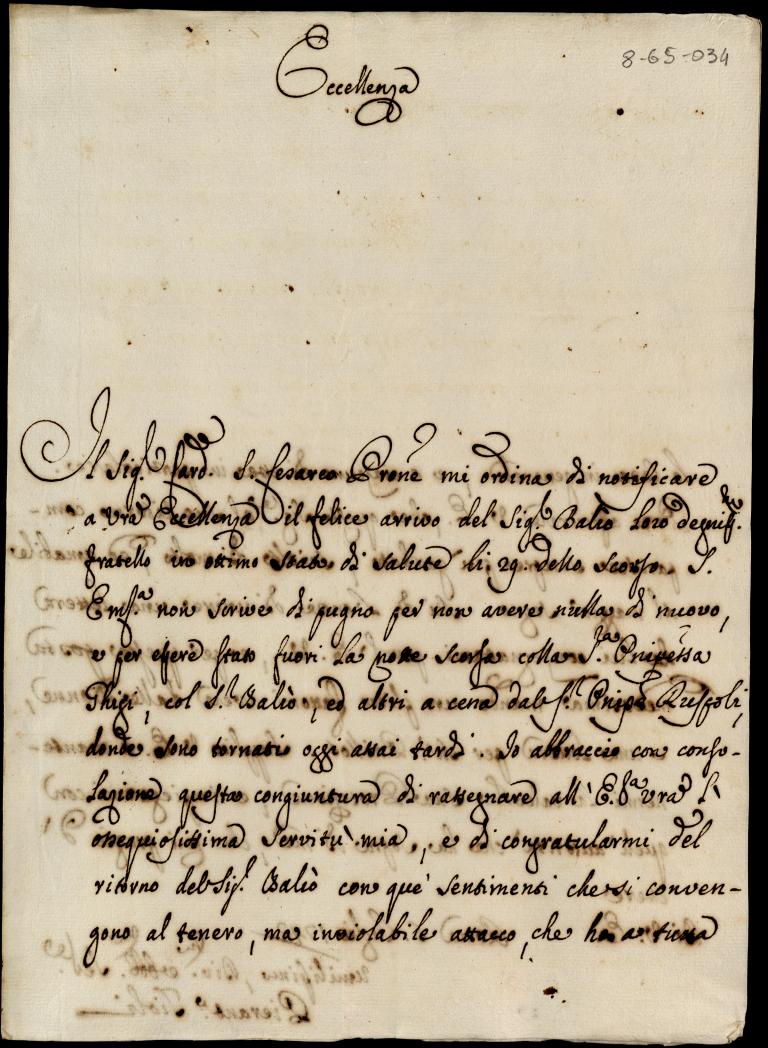 8-65-034
Eccellenza
Il Sig.r Card. S. Cesareo Prone mi ordina di notificare
a Vra Eccellenza il felice arrivo del Sig.r Balio Loro degnis.mo
fratello in ottimo stato di salute li 29. dello scorso. S.
Em.a non scrive di pugno per non avere nulla di nuovo,
e per essere stato fuori la notte scorsa colla S.ra Pnipessa
Chigi, col S.r Baliò, ed altri a cena dal S.r Pnipe Ruspoli,
donde sono tornati oggi assai tardi. Io abbraccio con conso-
lazione questa congiuntura di rassegnare all' E.za vra l'
ossequiosissima servitù mia, e di congratularmi del
ritorno del Sig.r Baliò con que' sentimenti che si conven-
gono al tenero, ma inviolabile attacco, che ho a tutta